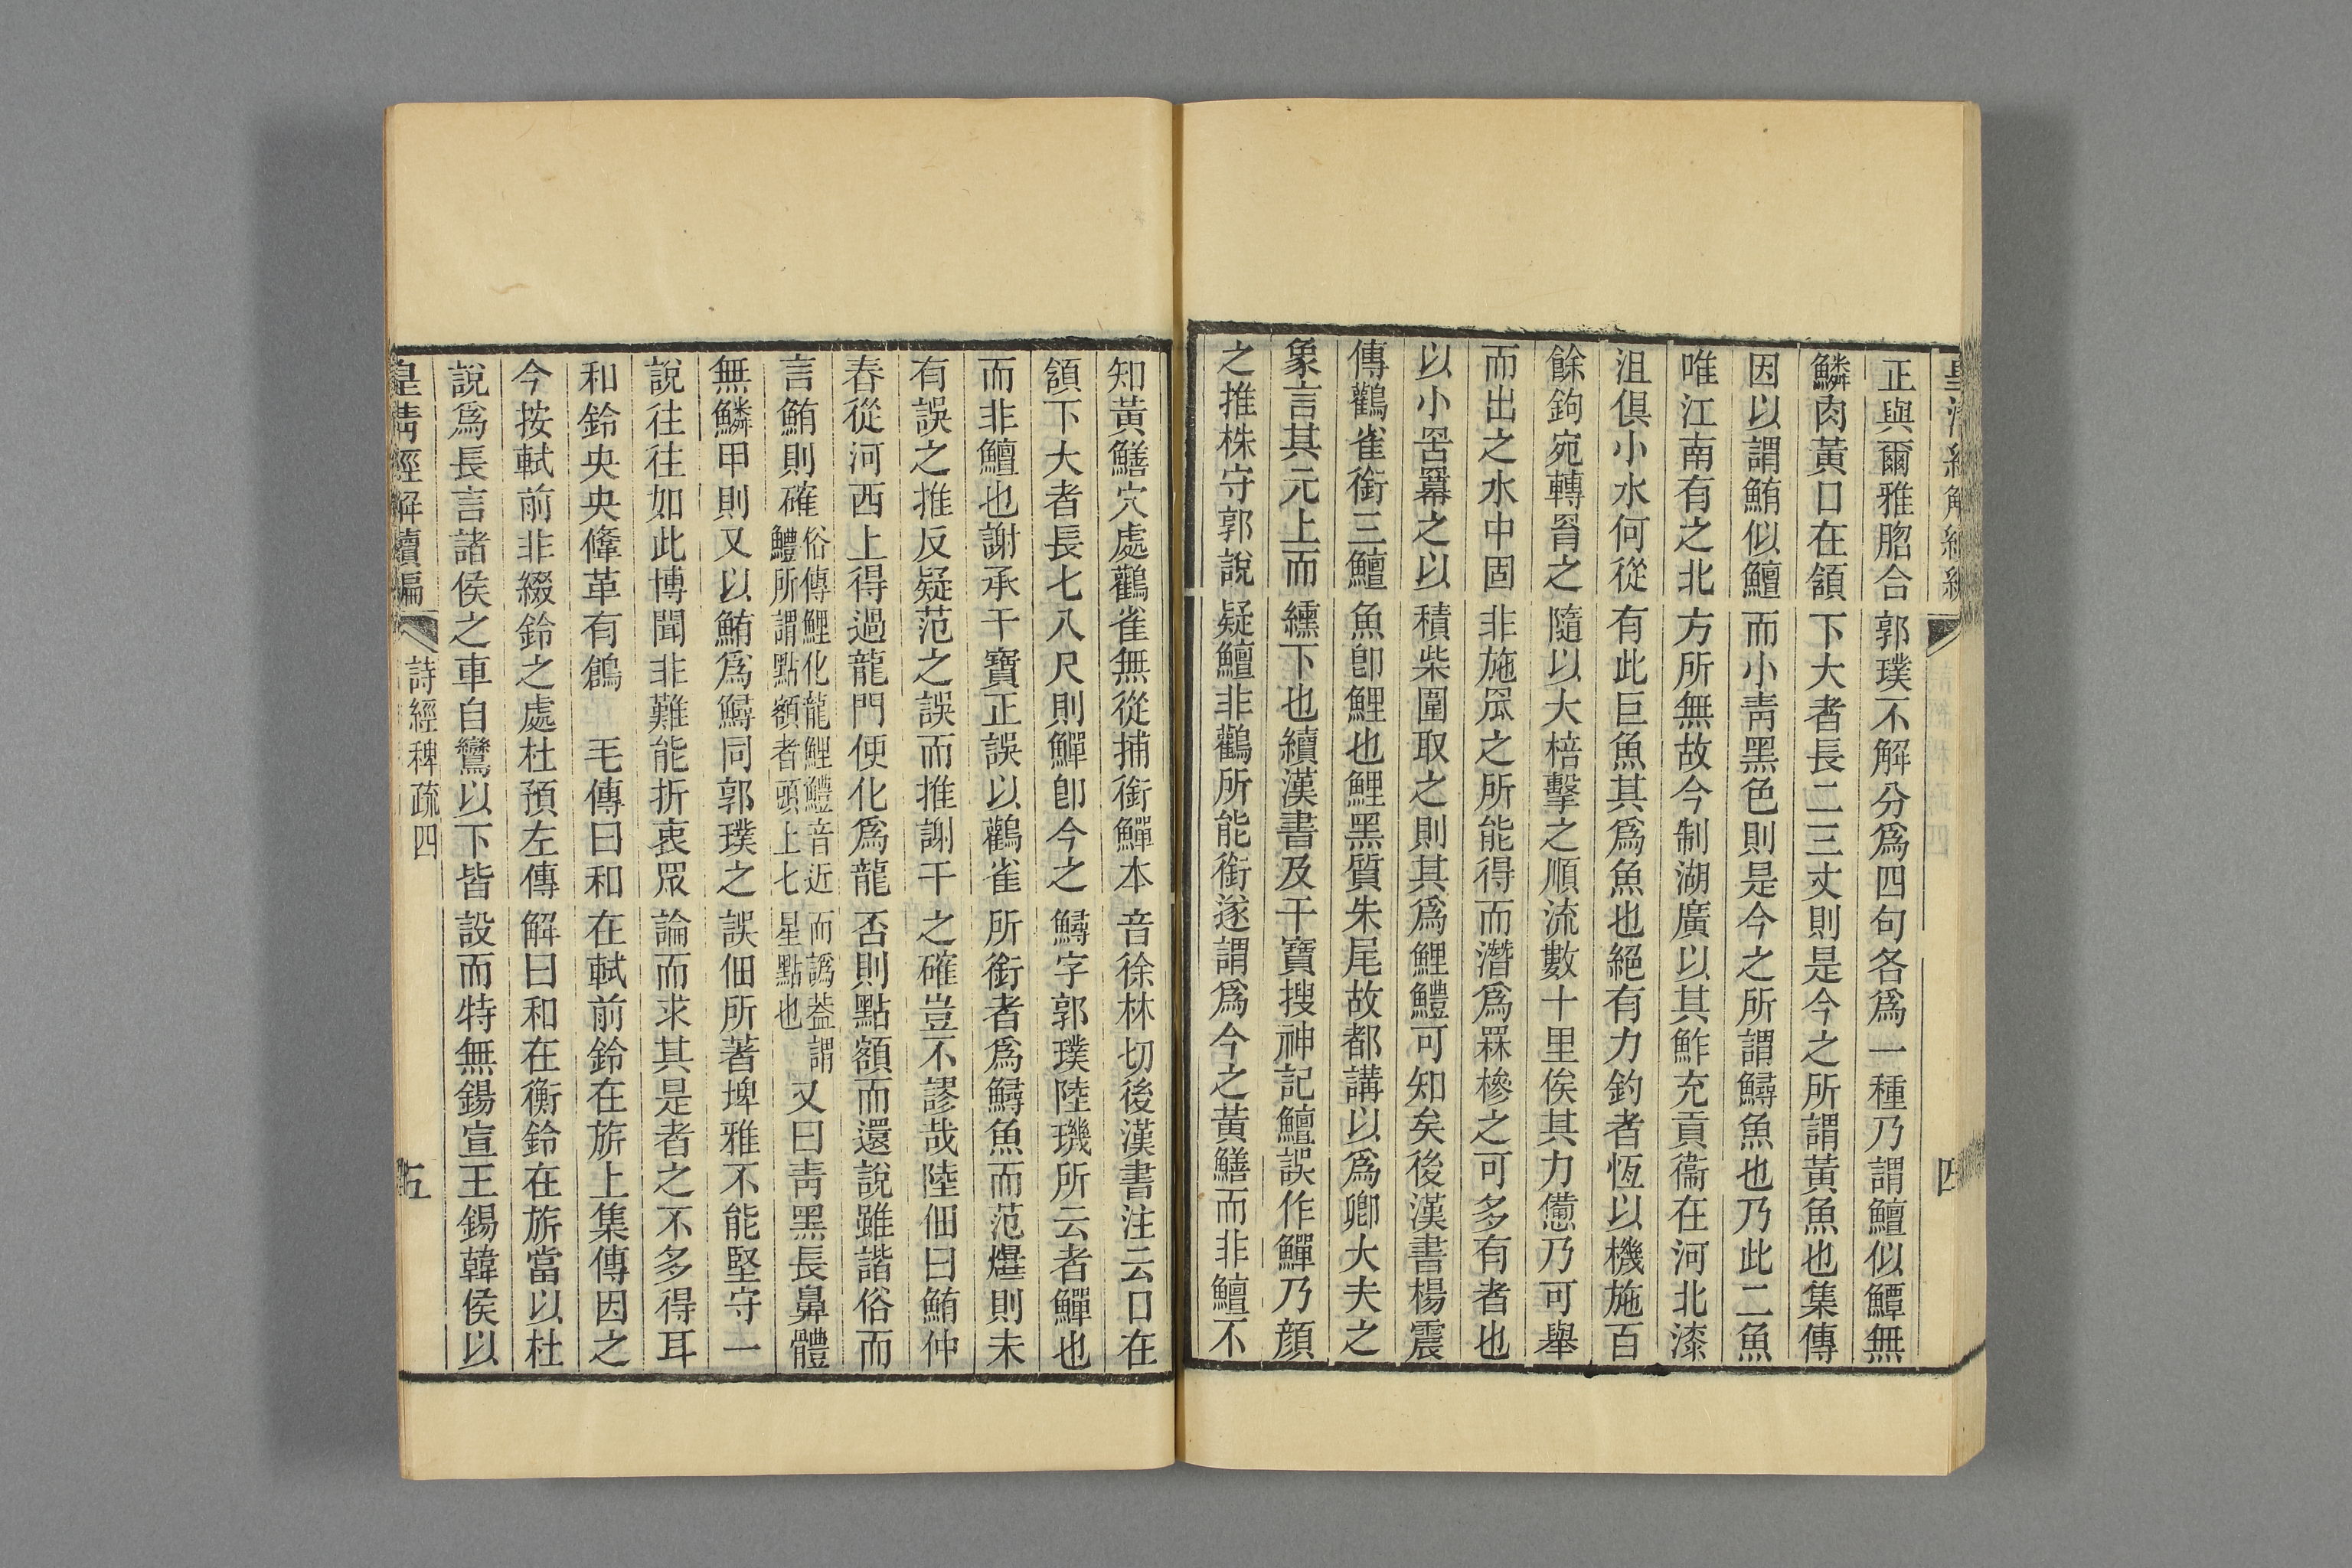 正與爾雅脗合郭璞不解分爲四句各爲一種乃謂鱣似鱏無
鱗肉黃口在頷下大者長二三丈則是今之所謂黃魚也集傳
因以謂鮪似鱣而小靑黑色則是今之所謂鱘魚也乃此二魚
唯江南有之北方所無故今制湖廣以其鮓充貢衞在河北漆
沮俱小水何從有此巨魚其爲魚也絕有力釣者恆以機施百
餘鉤宛轉罥之隨以大棓擊之順流數十里俟其力憊乃可舉
而出之水中固非施罛之所能得而潛爲罧槮之可多有者也
以小罟羃之以積柴圍取之則其爲鯉鱧可知矣後漢書楊震
傳鸛雀銜三鱣魚卽鯉也鯉黑質朱尾故都講以爲卿大夫之
象言其元上而纁下也續漢書及干寶搜神記鱣誤作鱓乃顏
之推株守郭說疑鱣非鸛所能銜遂謂爲今之黃鱔而非鱣不
知黃鱔穴處鸛雀無從捕銜鱓本音徐林切後漢書注云口在
頷下大者長七八尺則鱓卽今之鱘字郭璞陸璣所云者鱓也
而非鱣也謝承干寶正誤以鸛雀所銜者爲鱘魚而范㬥則未
有誤之推反疑范之誤而推謝干之確豈不謬哉陸佃曰鮪仲
春從河西上得過龍門便化爲龍否則點額而還說雖諧俗而
言鮪則確俗傳鯉化龍鯉鱧音近而譌葢謂鱧所謂點額者頭上七星點也又曰靑黑長鼻體
無鱗甲則又以鮪爲鱘同郭璞之誤佃所著埤雅不能堅守一
說往往如此博聞非難能折衷眾論而求其是者之不多得耳
和鈴央央鞗革有鶬　毛傳曰和在軾前鈴在旂上集傳因之
今按軾前非綴鈴之處杜預左傳解曰和在衡鈴在旂當以杜
說爲長言諸侯之車自鸞以下皆設而特無鍚宣王錫韓侯以
皇淸經解續編　詩經稗疏四　五